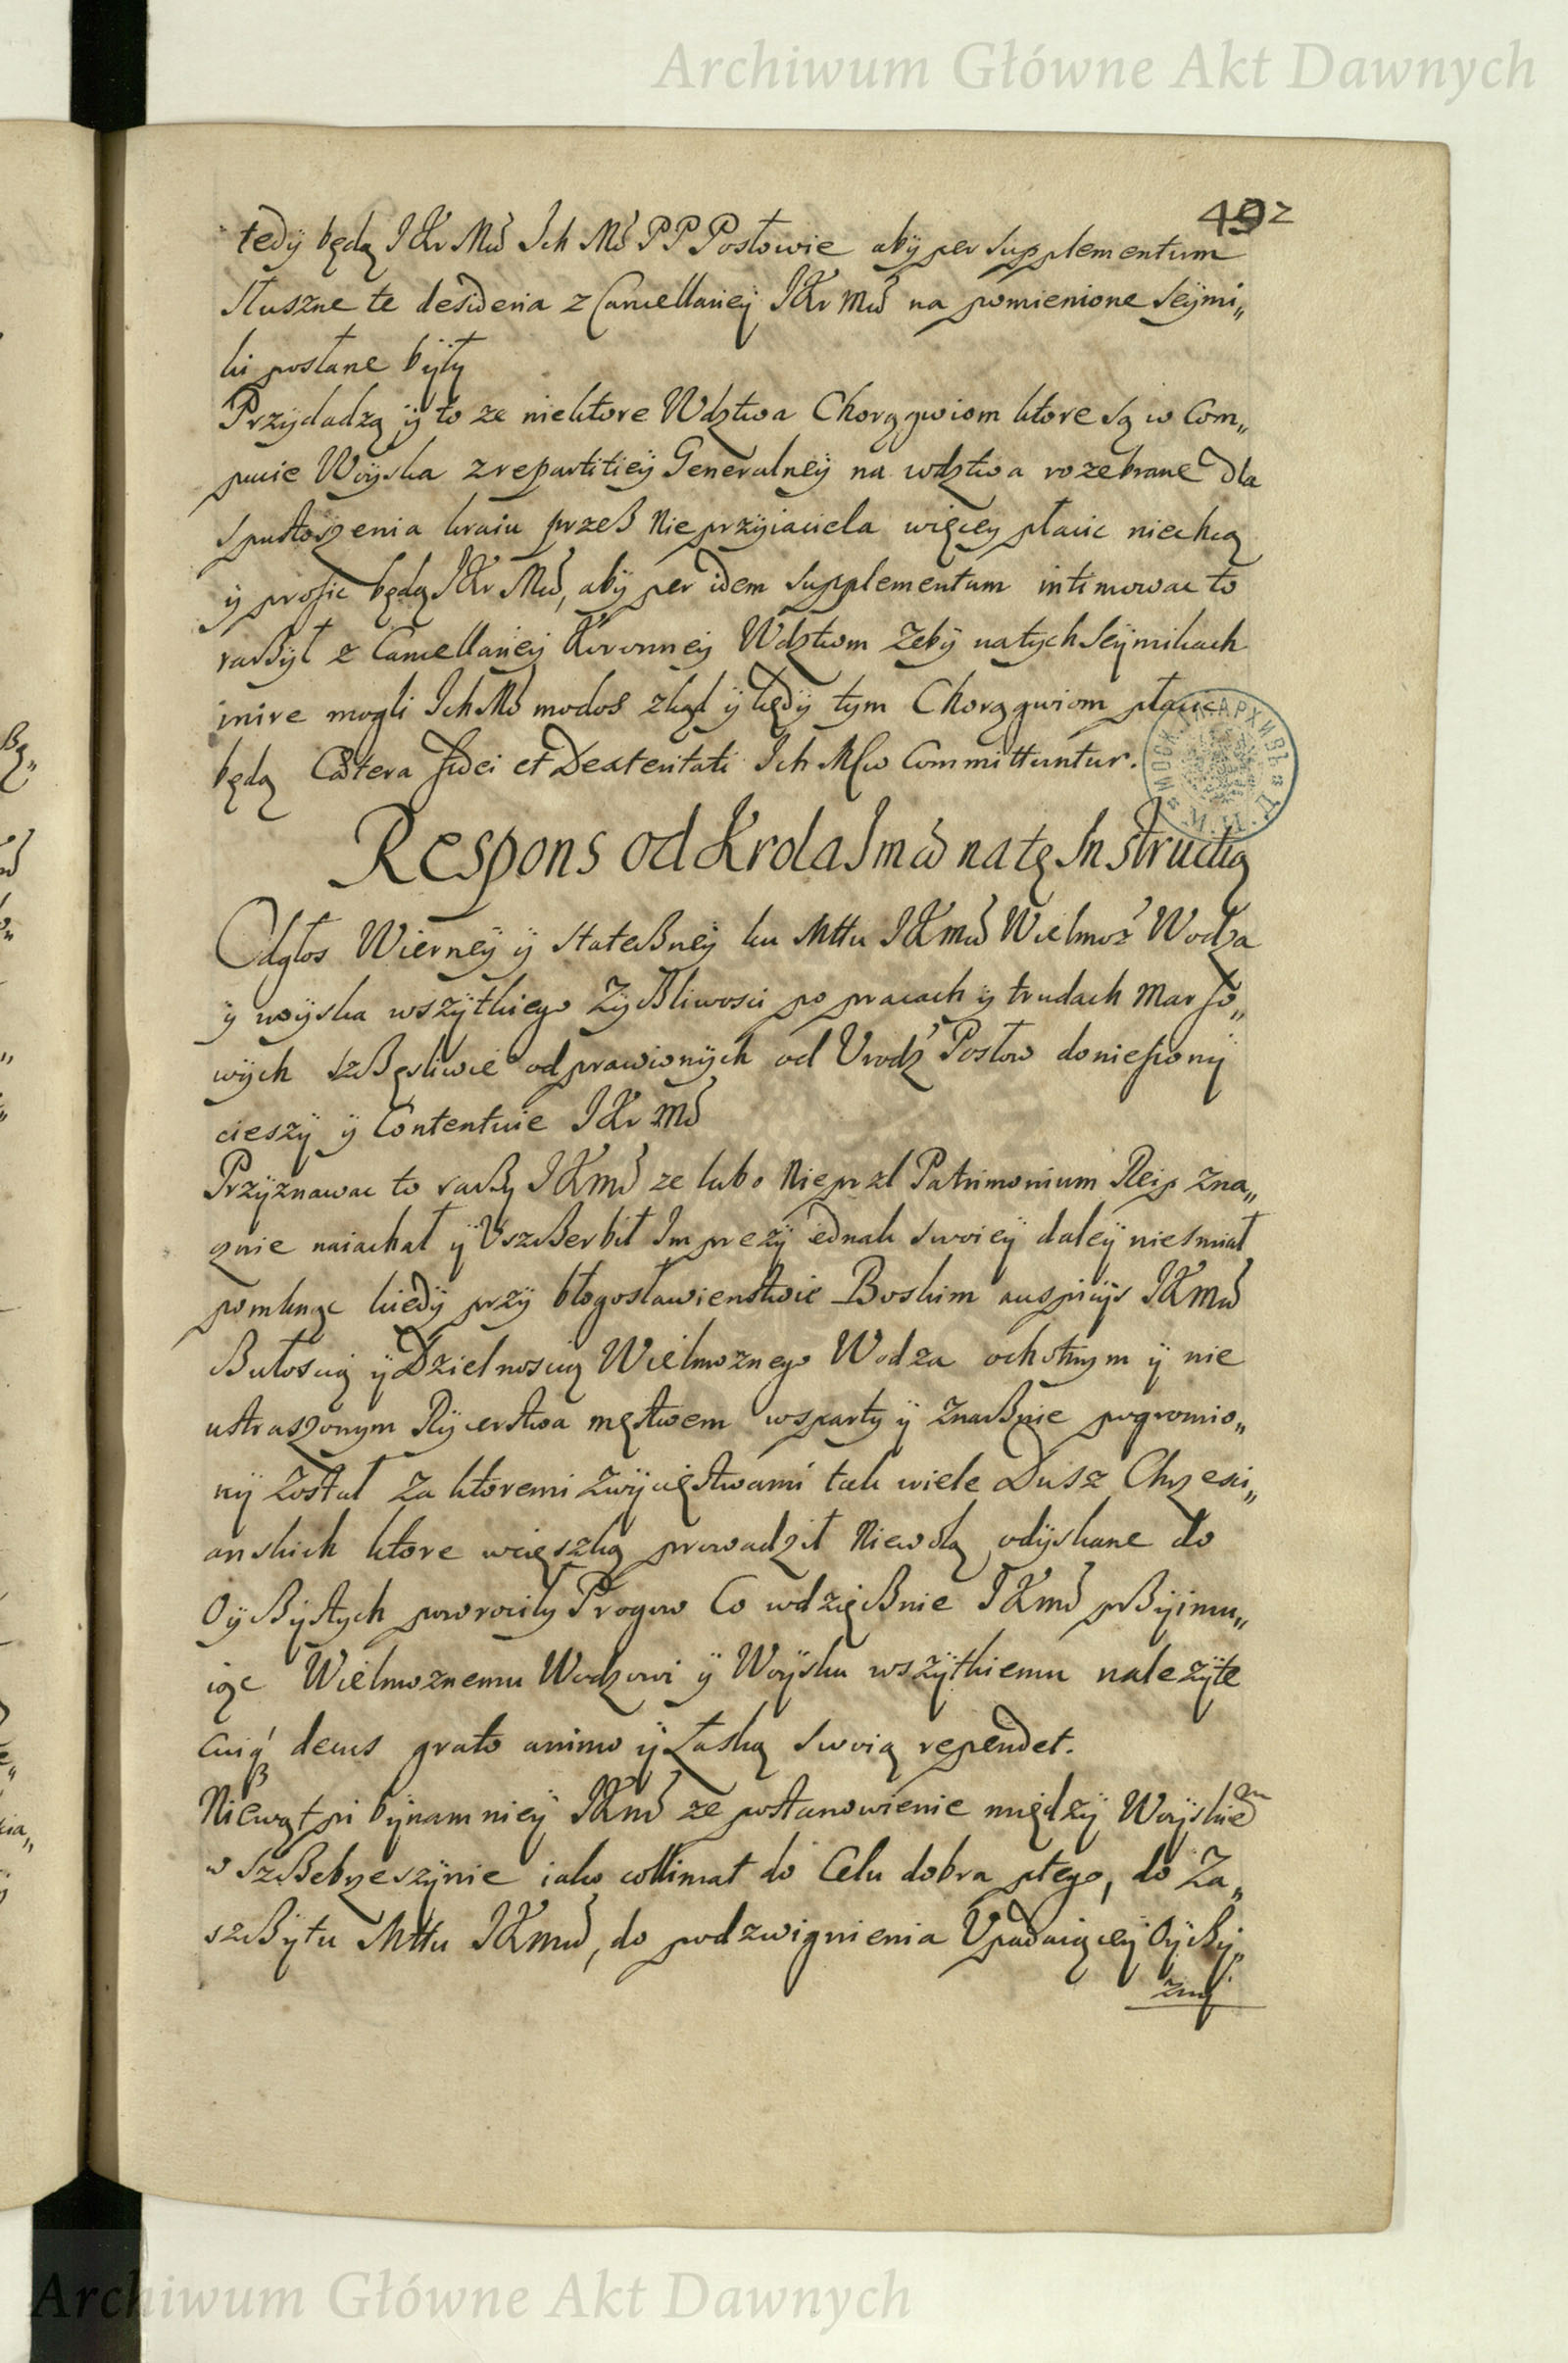 Archiwum Główne Akt Dawnych
492
tedÿ będą JKr Mći Ich Mć PP Posłowie abÿ per supplementum
słuszne te desideria z Cancellarieÿ JKr Mći na pomienione seÿmi„
ki posłane bÿłÿ
Przÿdadzą ÿ to ze niektore Wdztwa Chorągwiom ktore są w Com„
pucie Woÿska z repartitieÿ Generalneÿ na wdztwa rozebrane dla
spustoszenia kraiu przeß Nieprzÿiaciela więceÿ płacic niechcą
ÿ prosic będą JKr Mći, abÿ per idem supplementum intimowac to
raßÿł z Cancellarieÿ Koronneÿ Wdztwom Zebÿ na tÿch Seÿmikach
inire mogli Ich Mć modos zkąd ÿ kędÿ tym Chorągwiom płacic
będą Cætera fidei et Dexteritati Ich Mćiw Committuntur.
Respons od Krola Jmći na tę Instructią
Odgłos Wierneÿ ÿ stateßneÿ ku Mttu JKmći Wielmoż Wodza
ÿ woÿska wszÿtkiego Zÿßliwosci po pracach ÿ trudach Marso„
wÿch szßęsliwie odprawionÿch od Urodz Posłow doniesionÿ
cieszÿ ÿ Contentuie JKr Mć
Przÿznawac to raßÿ JKmć ze lubo Nieprzl Patrimonium Reip zna„
cznie naiachał ÿ Uszßerbił Imprezÿ iednak swoieÿ daleÿ niesmiał
pomknąc kiedÿ przÿ błogosławienstwie Boskim auspicÿs JKmći
Bułoscią ÿ Dzielnoscią Wielmoznego Wodza ochotnym ÿ nie
ustraszonym Rÿcerstwa męstwem wspartÿ ÿ znaßnie pogromio„
nÿ został za ktoremi zwÿcięstwami tak wiele Dusz Chrzesci„
anskich ktore wcięszką prowadził Niewolą odÿskane do
Oÿßÿstÿch powrociłÿ Progow Co wdzięßnie JKmć pßÿimu„
iąc Wielmoznemu Wodzowi ÿ Woÿsku wszÿtkiemu nalezÿte
cuiq́ decus grato animo ÿ Łaską swoią rependet.
Niewątpi bÿnamnieÿ JKmć ze postanowienie międzÿ Woÿskiem
w Szßebrzeszÿnie iako collimat do Celu dobra płego, do Za„
szßÿtu Mttu JKmći, do podzwignienia Upadaiąceÿ Oÿßÿ„
znÿ
Archiwum Główne Akt Dawnych